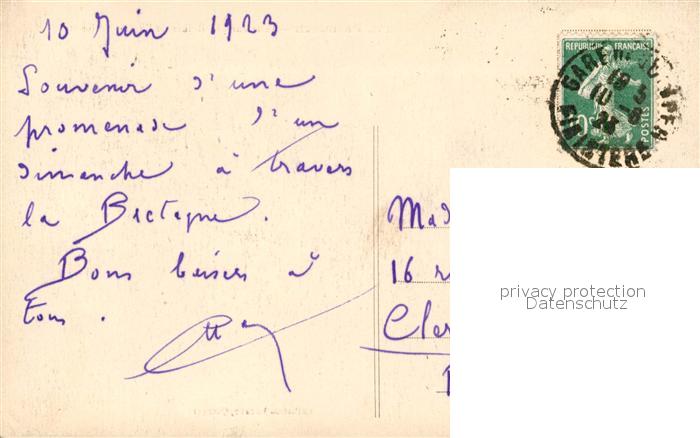 10 Juin 1923
Souvenir d'une
promenade d'un
dimanche à travers
la Bretagne.
Bons baisers à
tous.
Mad
16 r
Cler
REPUBLIQUE FRANÇAISE
POSTES
10c
GARE
FINISTERE
privacy protection
Datenschutz